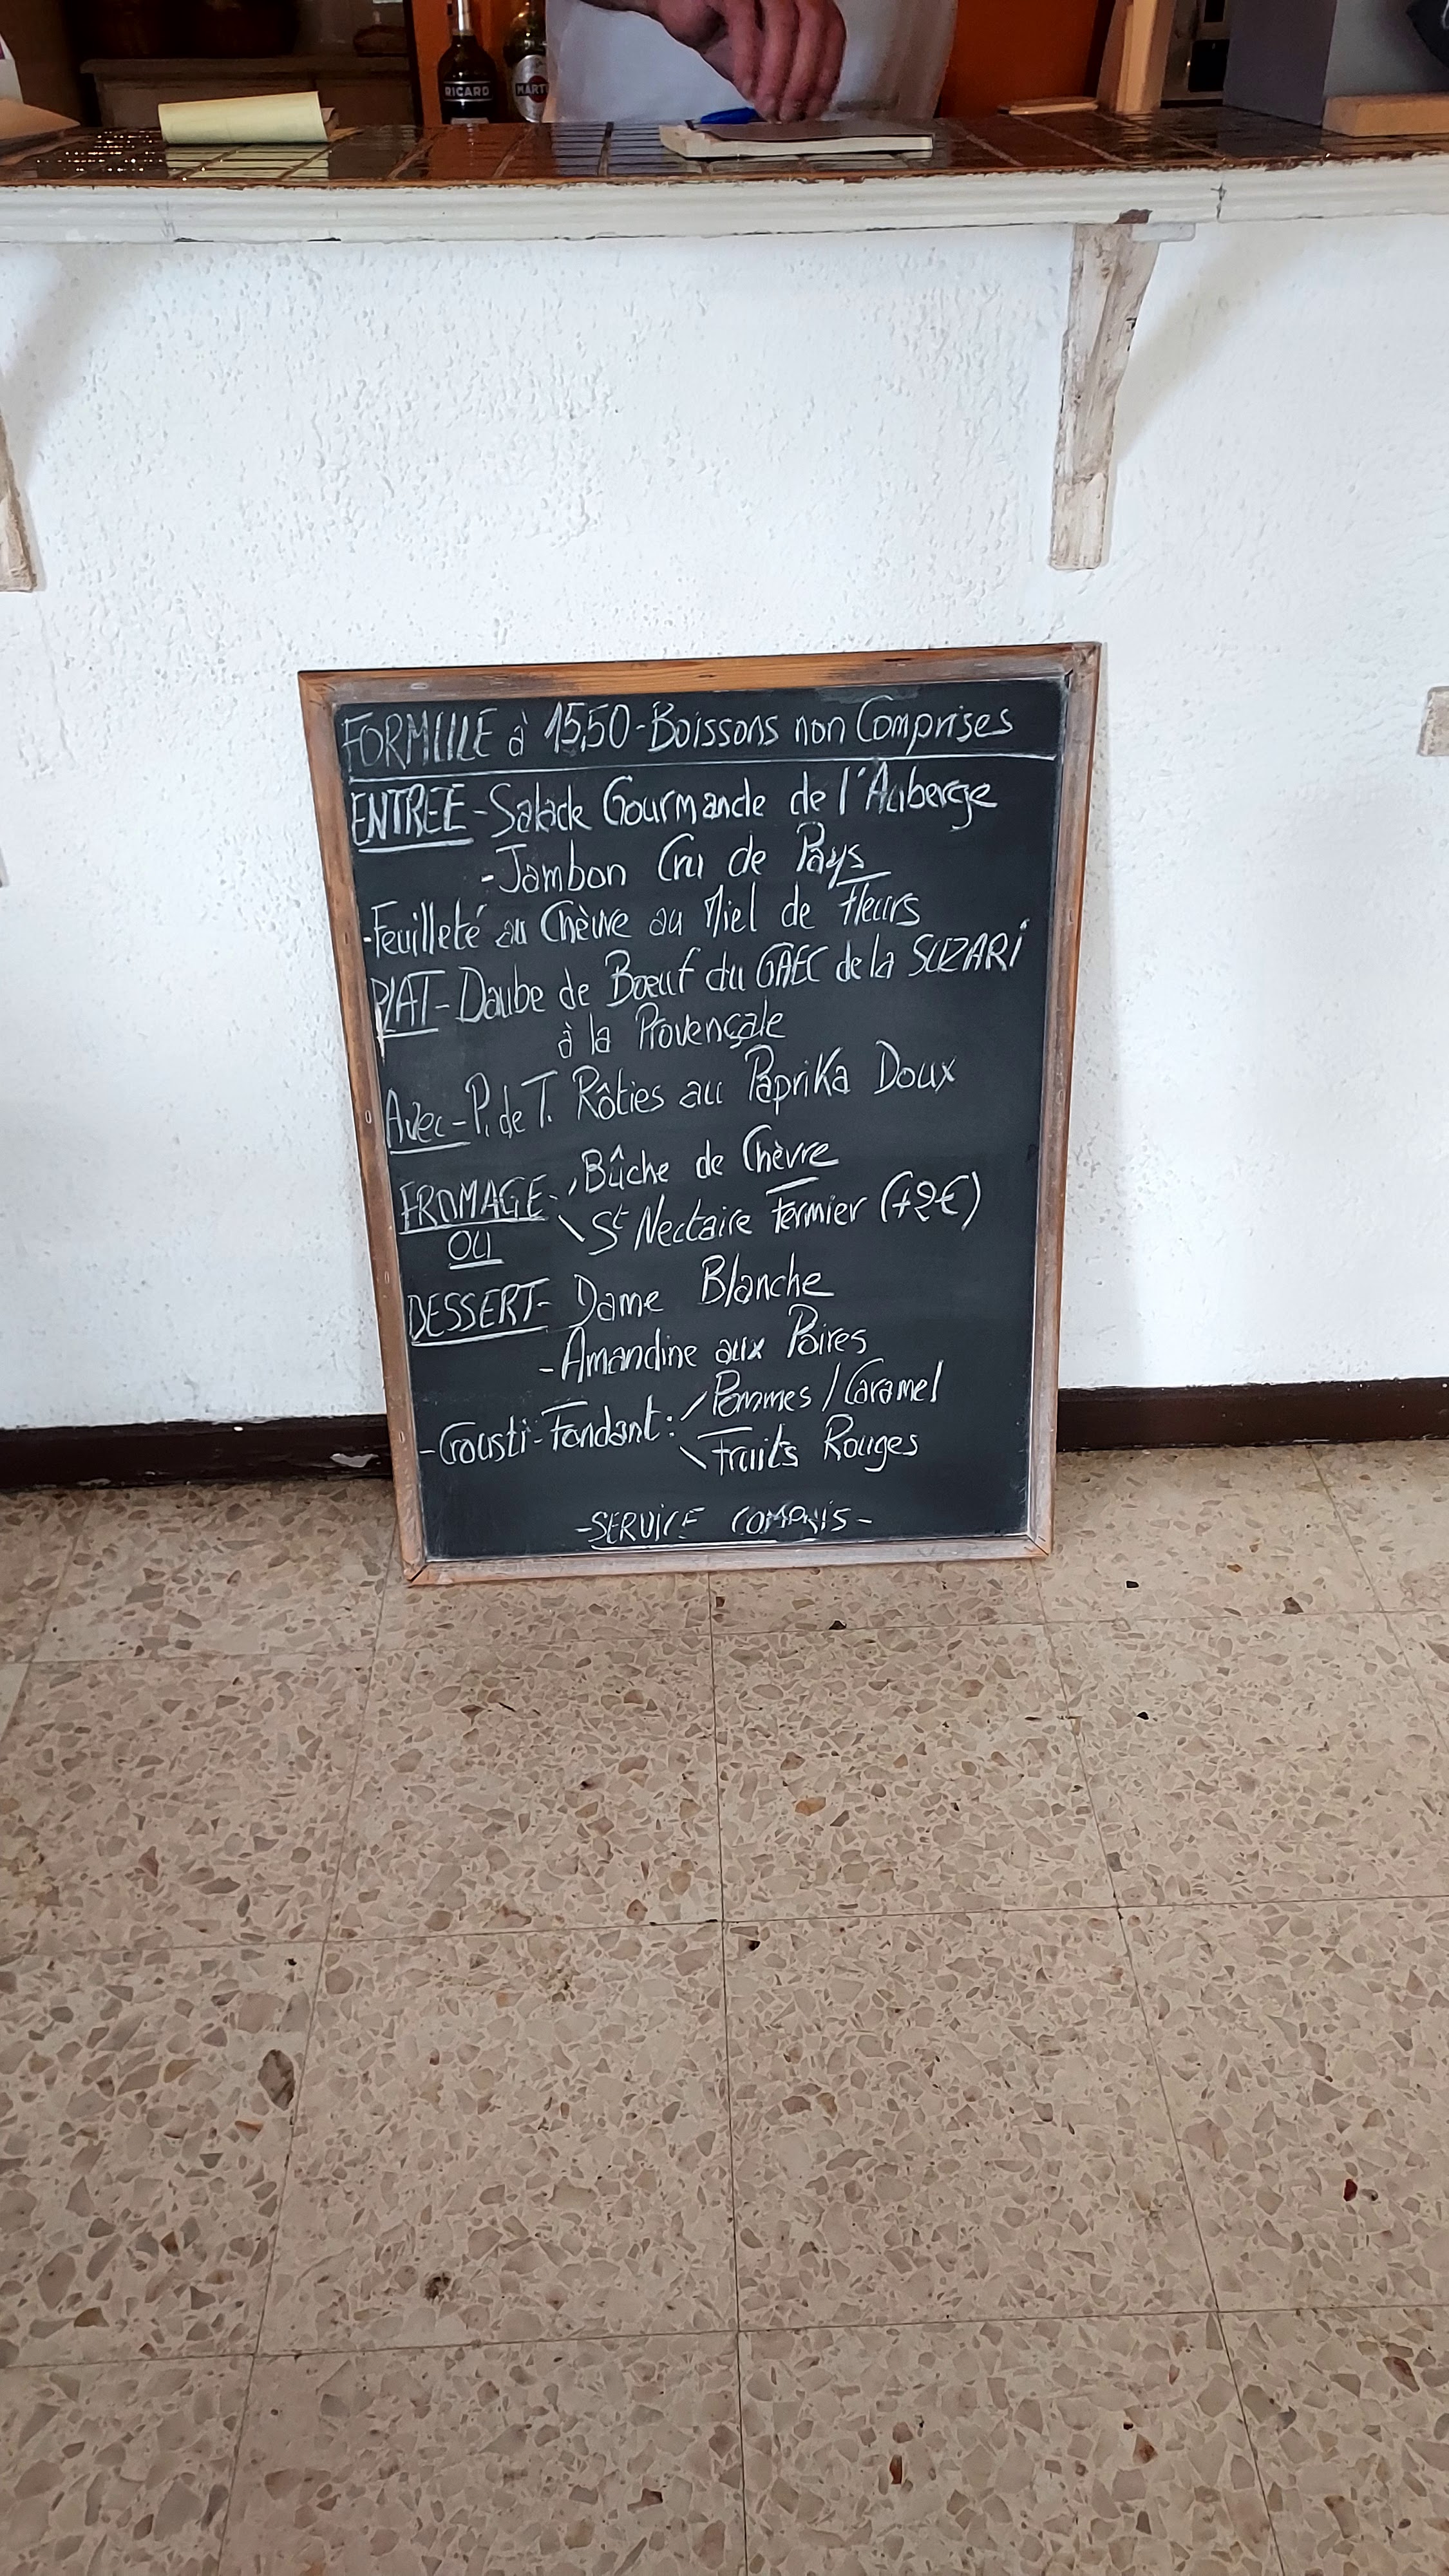 RICARD
MARTI
FORMULE à 15,50-Boissons non Comprises
ENTREE-Salade Gourmande de l'Auberge
-Jambon Cru de Pays
-Feuilleté au Chèvre au Miel de Fleurs
PLAT-Daube de Boeuf du GAEC de la SUZARI
à la Provençale
Avec-P. de T. Rôties au Paprika Doux
FROMAGE Bûche de Chèvre
OU St Nectaire Fermier (+2€)
DESSERT- Dame Blanche
-Amandine aux Poires
-Crousti-Fondant: Pommes / Caramel
Fruits Rouges
-SERVICE COMPRIS-